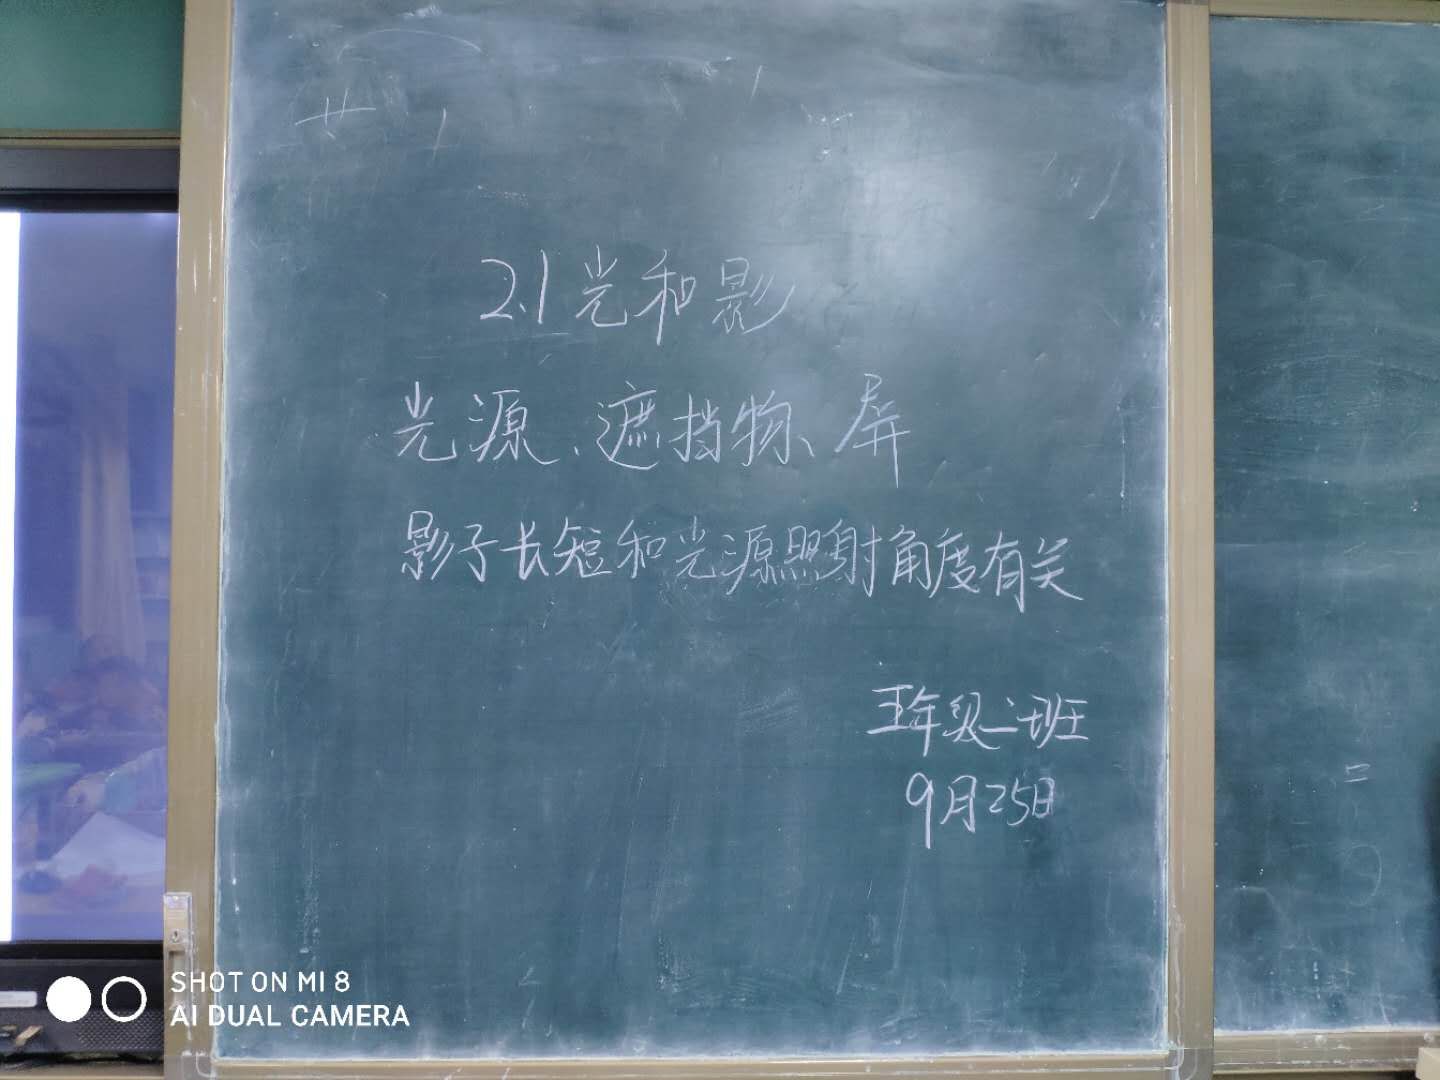 2.1光和影
光源、遮挡物、屏
影子长短和光源照射角度有关
五年级二班
9月25日
SHOT ON MI 8
AI DUAL CAMERA